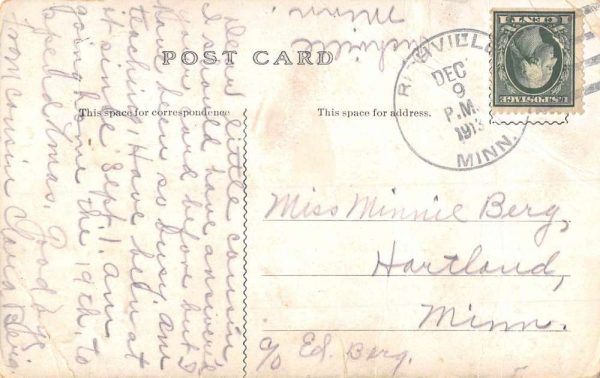 POST CARD
This space for correspondence
This space for address.
RICHVILLE
DEC
9
P.M.
1913
MINN.
U.S. POSTAGE
1 CENT 1
Richville
Minn
Dear little cousin,
I should have answered
your card before but I
have been so busy am
teaching. Have been at
it since Sept 1. Am
going home the 19th to
spend Xmas. Good bye
from cousin Clara
Miss Minnie Berg,
Hartland,
Minn.
c/o Ed. Berg.